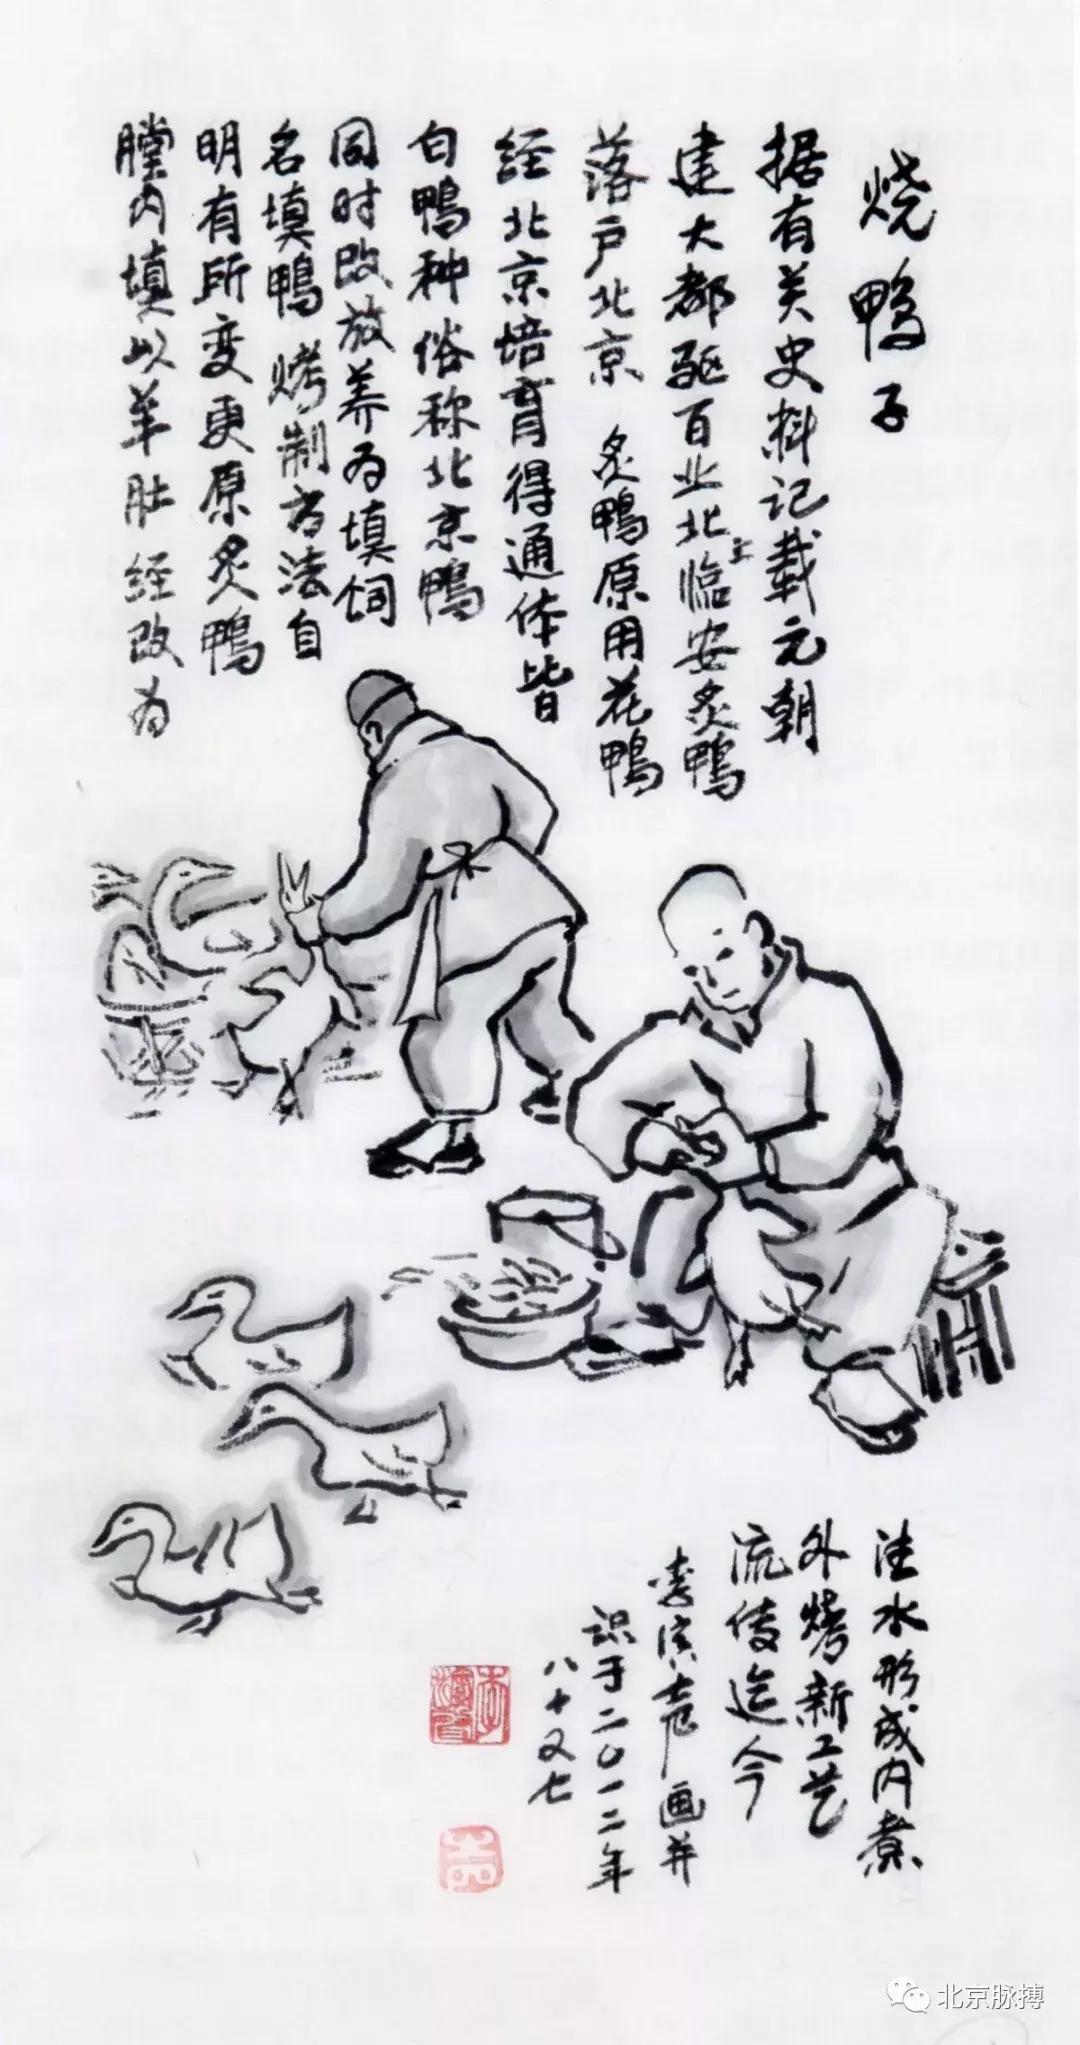 烧鸭子
据有关史料记载元朝
建大都驱百业北上临安炙鴨
落户北京 炙鴨原用花鴨
经北京培育得通体皆
白鴨种俗称北京鴨
同时改放养为填饲
名填鴨 烤制方法自
明有所变更原炙鴨
膛内填以羊肚经改为
注水形成内煮
外烤新工艺
流传迄今
李滨声画并
识于二〇一二年
八十又七
北京脉搏